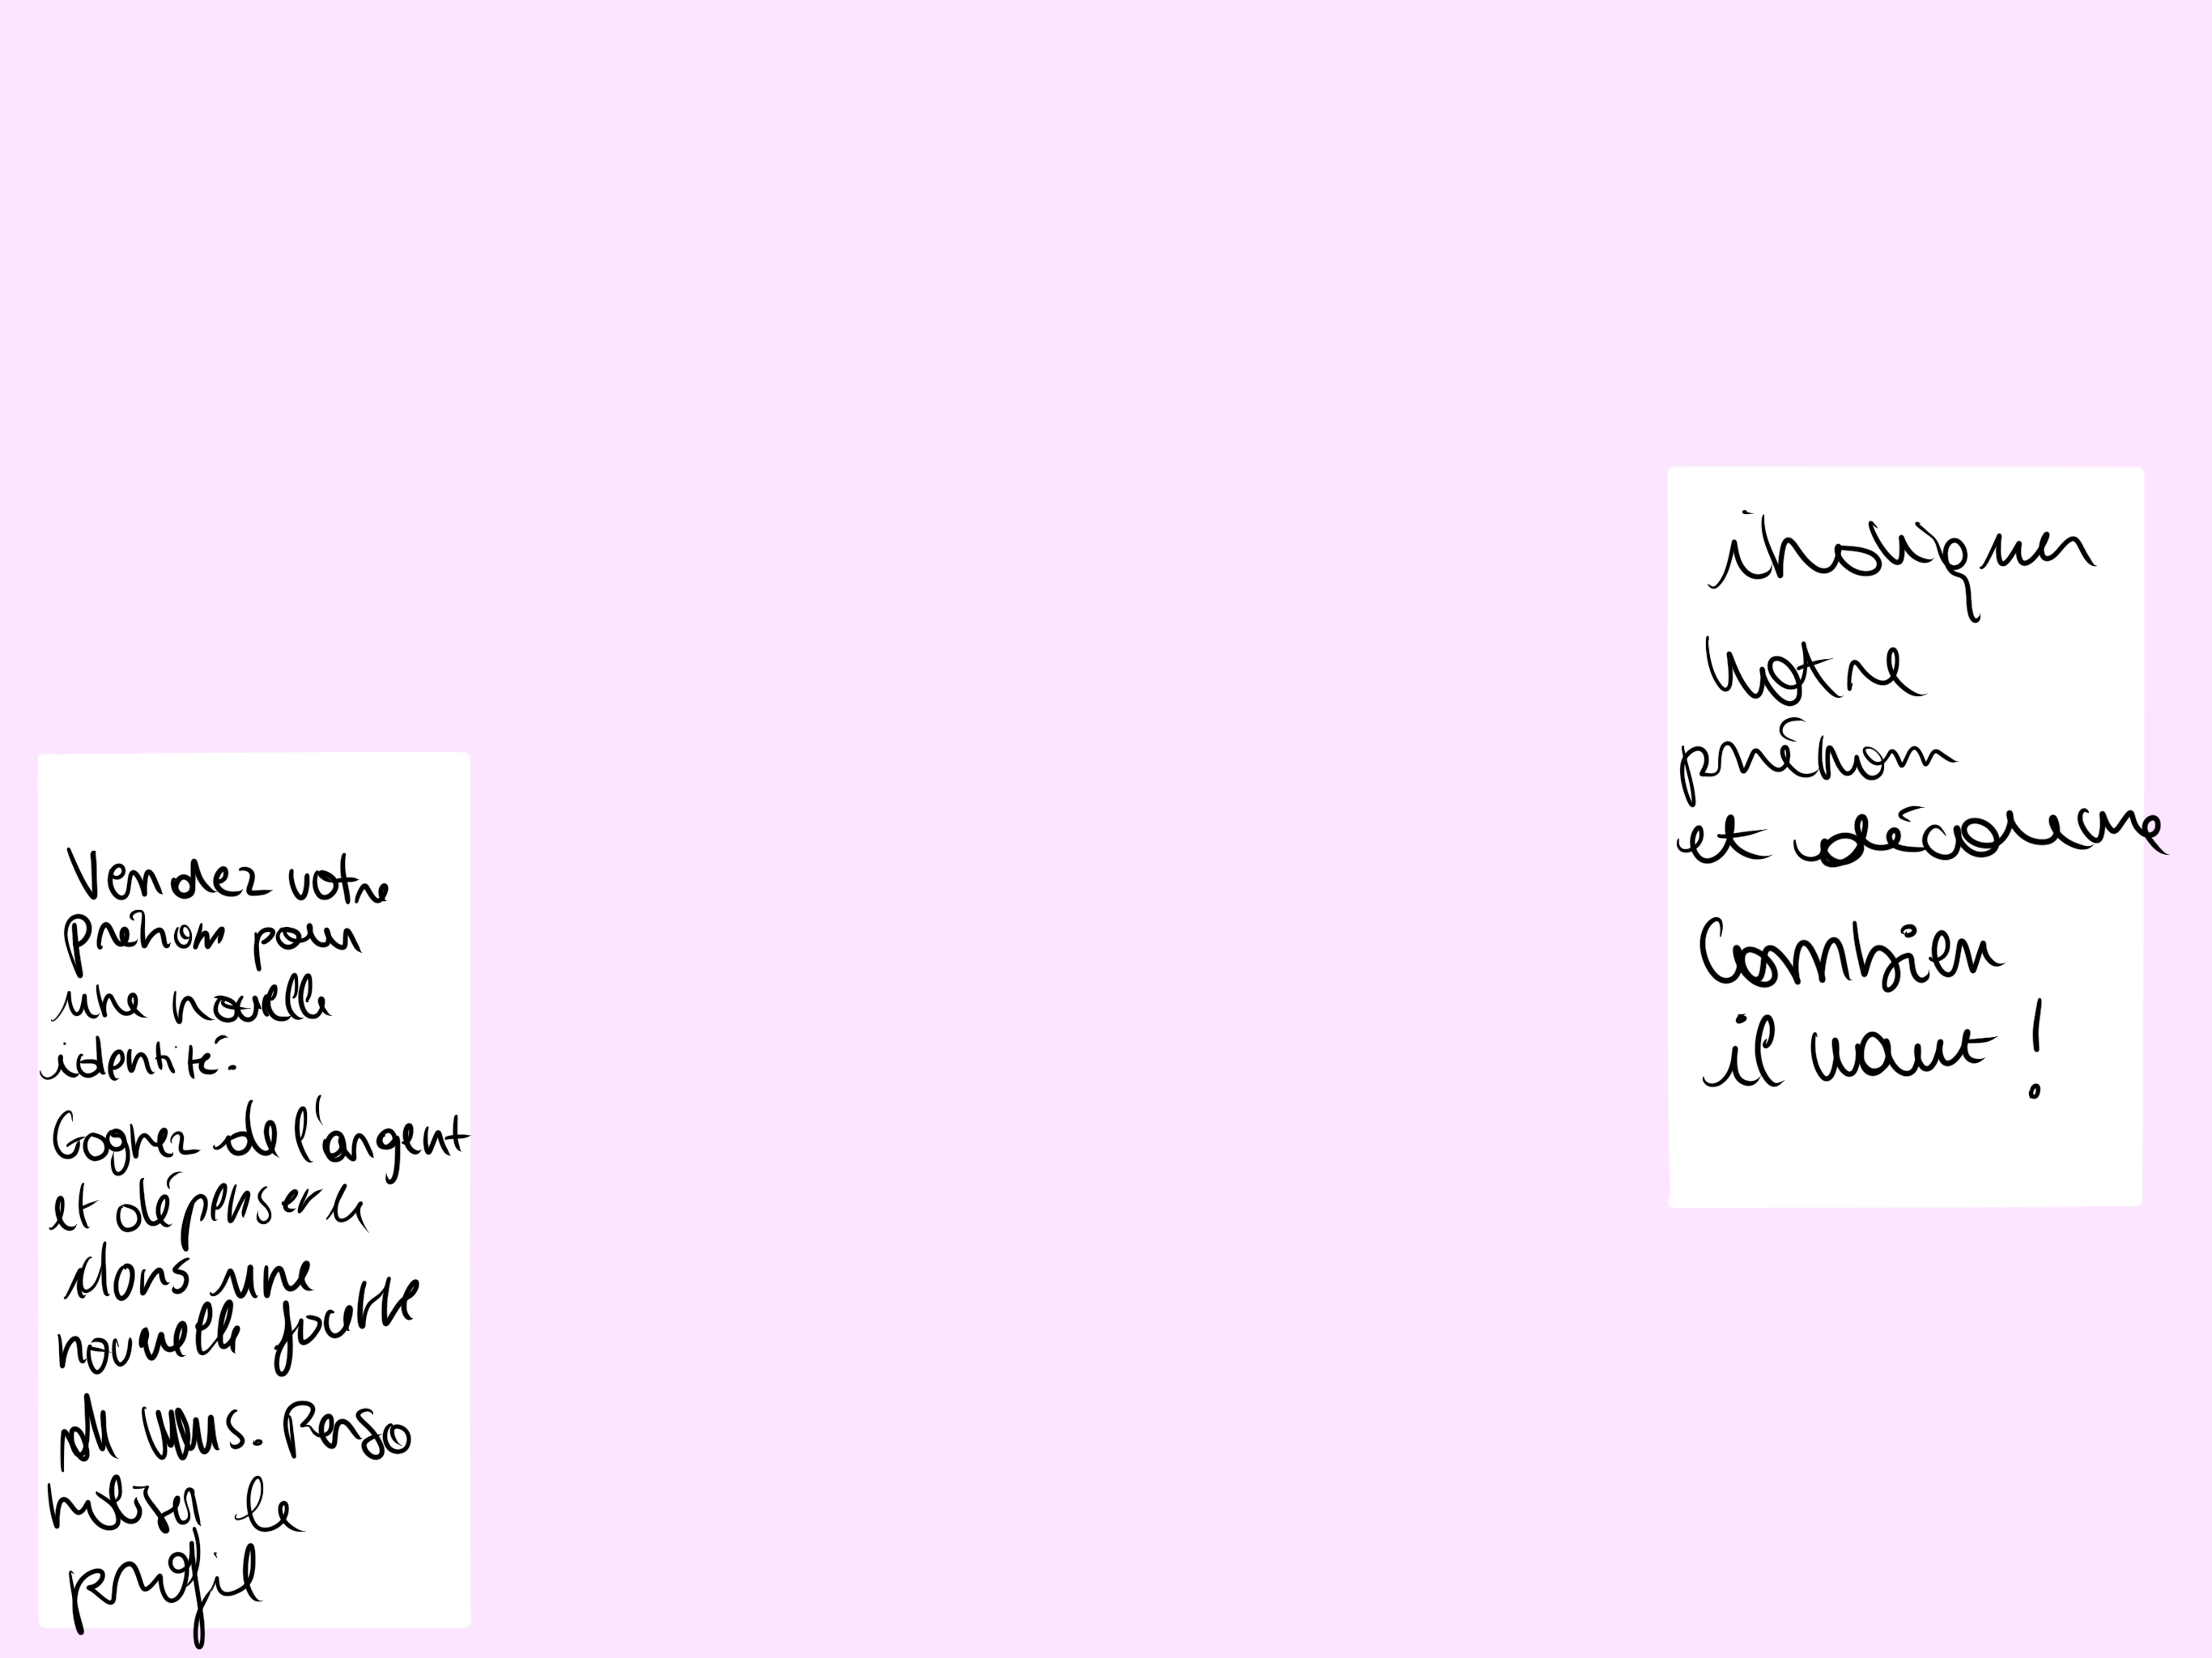 Vendez votre
prénom pour
une nouvelle
identité.
Gagnez de l'argent
et dépenser
dans une
nouvelle facette
de vous. Perso
le
profil
indiquer
votre
prénom
et découvre
Combien
il vaut !